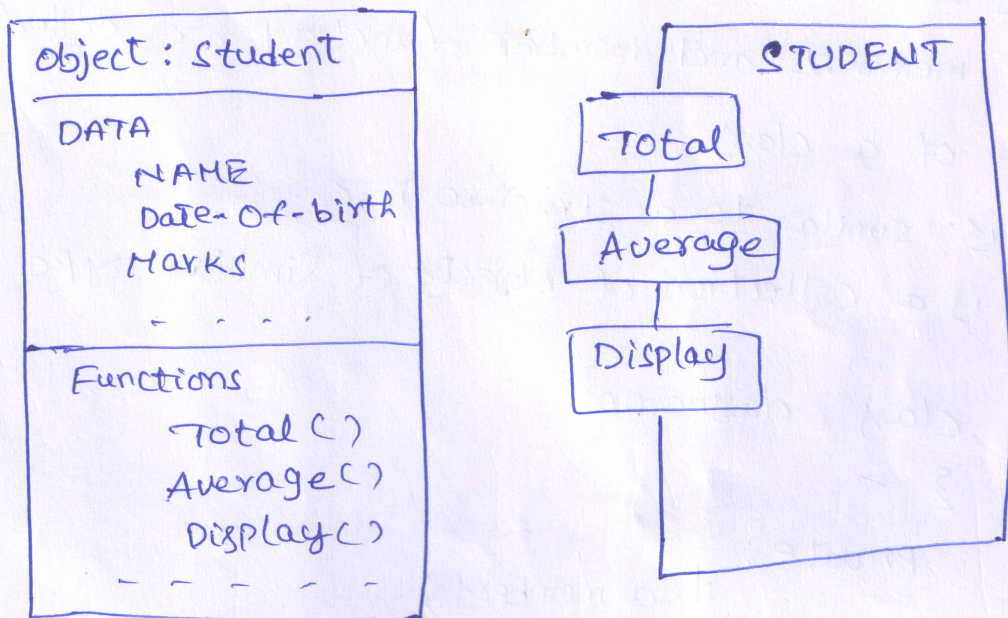 object : Student
DATA
NAME
Date-Of-birth
Marks
- - - -
Functions
Total ( )
Average ( )
Display ( )
- - - - -
STUDENT
Total
Average
Display